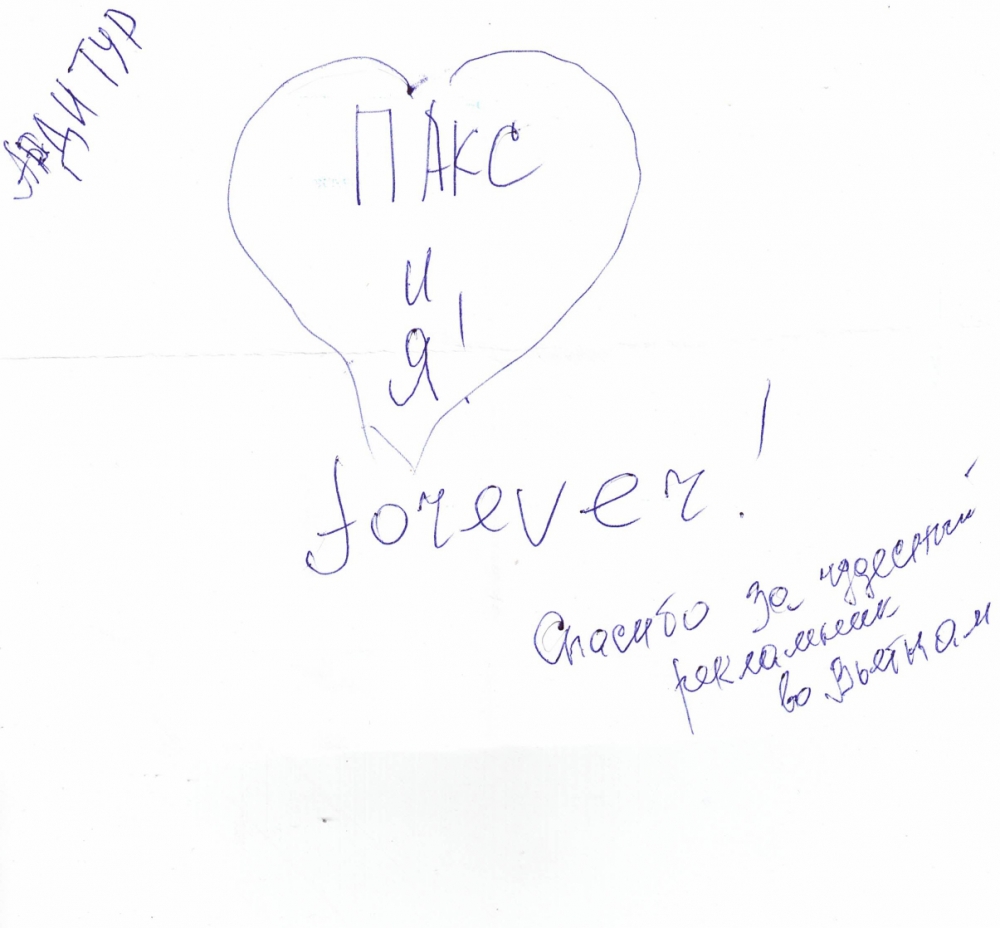 АРДИ ТУР
ПАКС
и
Я!
forever!
Спасибо за чудесный
рекламник
во Вьетнам